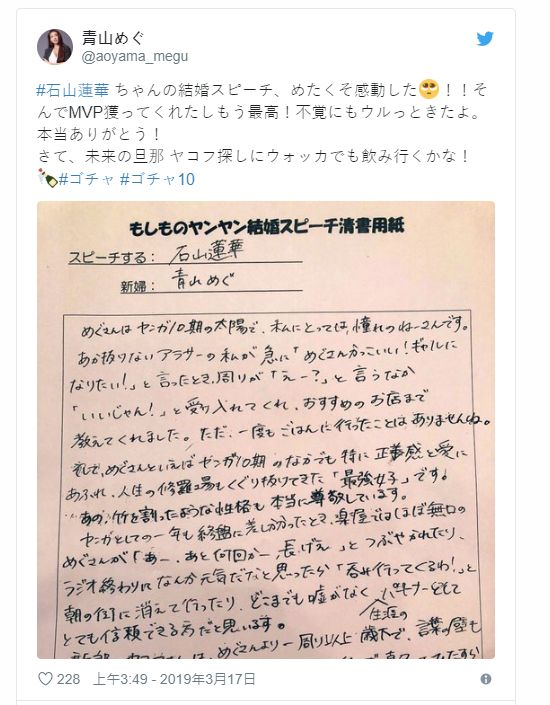 青山めぐ
@aoyama_megu
#石山蓮華 ちゃんの結婚スピーチ、めたくそ感動した🥺！！そ
んでMVP獲ってくれたしもう最高！不覚にもウルっときたよ。
本当ありがとう！
さて、未来の旦那 ヤコフ探しにウォッカでも飲み行くかな！
🍾#ゴチャ #ゴチャ10
もしものヤンヤン結婚スピーチ清書用紙
スピーチする： 石山蓮華
新婦： 青山めぐ
めぐさんはセンガ10期の太陽で、私にとっては、憧れのねーさんです。
あか抜けないアラサーの私が急に「めぐさんかっこいい！ギャルに
なりたい！」と言ったとき、周りが「えー？」と言うなか
「いいじゃん！」と受け入れてくれ、おすすめのお店まで
教えてくれました。ただ、一度もごはんに行ったことはありませんね。
そして、めぐさんといえばセンガ10期のなかでも特に正義感と愛に
あふれ、人生の修羅場もくぐり抜けてきた「最強女子」です。
あの、竹を割ったような性格も本当に尊敬しています。
センガとしての一年も終盤に差しかかったとき、楽屋ではほぼ無口の
めぐさんが「あー、あと何回かー長げぇ」とつぶやかれたり、
ラジオ終わりになんか元気だなと思ったら「呑み行ってくるわ！」と
朝の街に消えて行ったり、どこまでも嘘がなく パートナーとして
とても信頼できる方だと思います。 生涯の
めぐさんより一周り以上歳下で、言葉の壁も
228 上午3:49 - 2019年3月17日